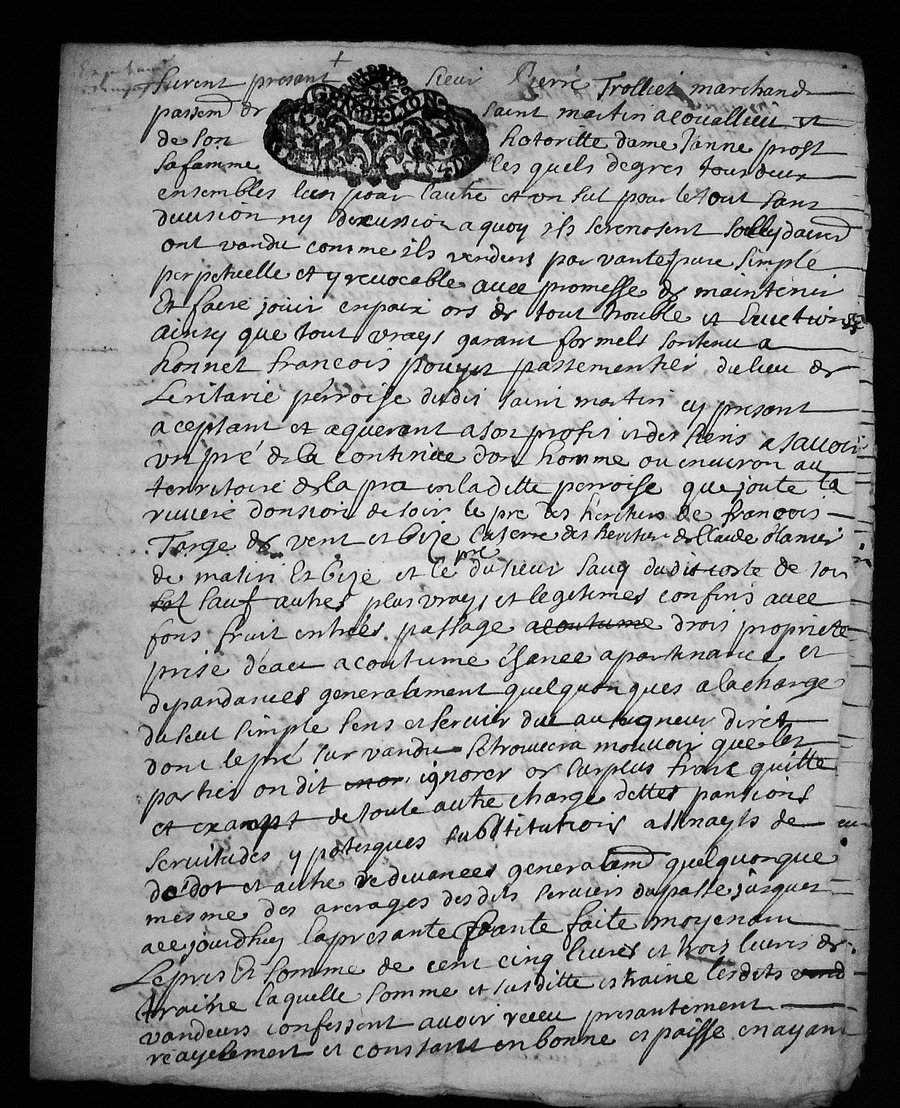 furent presant sieur Pierre Trolliet marchand
passemd de saint martin acouallieu et
de son hotoritte dame Janne prost
safamme les quels de gres tous deux
ensembles lun pour lautre et vn sul pour le tout sans
diuision ny discussion a quoy ils renonsent sollydairemt
ont vandu comme ils vendent par vante pure simple
perpetuelle et yreuocable auec promesse de maintenir
Et faire jouir enpaix ors de tout trouble et Euiction
ainsy que tout vrays garant formels sont tenu a
honnet francois pouyet passementier du lieu de
Leritarie perroise dudit saint martin cy presant
aceptant et aquerant a son profit et des siens a sauoir
vn pré de la continue dun homme ou enuiron au
territoire de la pra en laditte perroise que joute la
riuiere donsion de soir le pre des heritiers de francois
Targe de vent et bize la terre des heritiers de Claude
de matin Et bize et le pré du sieur dudit coste de soir
sauf autres plus vrays et legitimes confins auec
fons fruit entrées passage acoutume drois propriete
prise deau acoutume apartinance et
depandances generalament quelquonques a la charge
du seul simple sens et seruir due au seigneur direct
dont le pré sur vandu se trouuera mouuoir que les
parties on dit ignorer or surplus franc quitte
et exampt de toute autre charge dettes pansions
seruitudes ypoteques substitutions de
de dot et autre reduances generalamd quelquonque
mesme des arerages desdits seruiers du passe jusques
a ce jourdhuy la presante vante faite moyenant
Le pris Et somme de cent cinq liures et trois liures de
traine laquelle somme et susditte estraine lesdits
vandeurs confessent auoir receu presantement
reayelement et constant en bonne espaisse en ayant